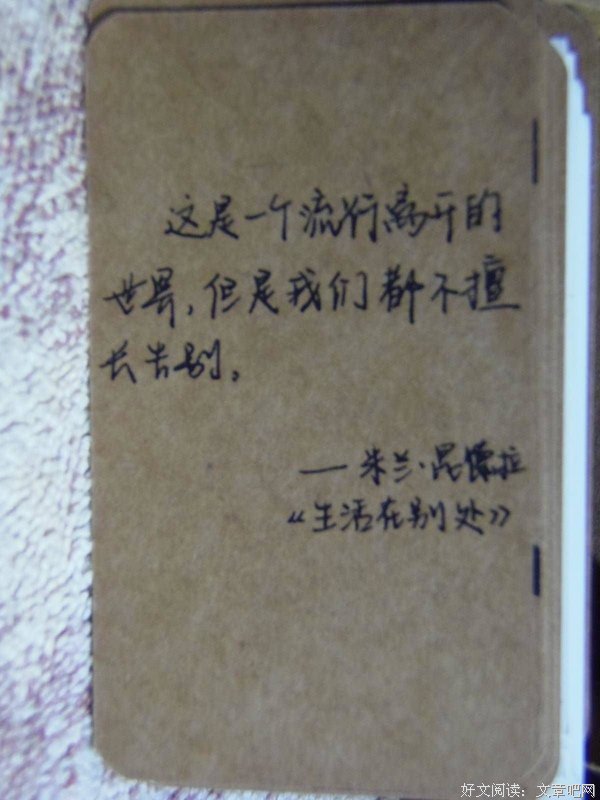 这是一个流行离开的
世界,但是我们都不擅
长告别。
— 米兰·昆德拉
《生活在别处》
好文阅读:文章吧网